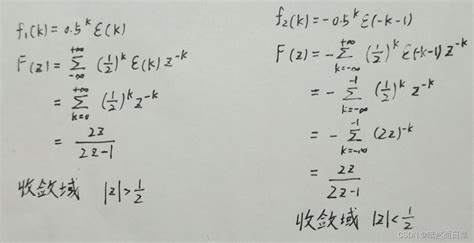 f₁(k)=0.5ᵏ ε(k)
F(z)= ∑_{-∞}^{+∞} (1/2)ᵏ ε(k) z⁻ᵏ
= ∑_{k=0}^{+∞} (1/2)ᵏ z⁻ᵏ
= 2z/(2z-1)
收敛域 |z|>1/2
f₂(k)=-0.5ᵏ ε(-k-1)
F(z)=- ∑_{k=-∞}^{+∞} (1/2)ᵏ ε(-k-1) z⁻ᵏ
= - ∑_{k=-∞}^{-1} (1/2)ᵏ z⁻ᵏ
= - ∑_{k=-∞}^{-1} (2z)⁻ᵏ
= 2z/(2z-1)
收敛域 |z|<1/2